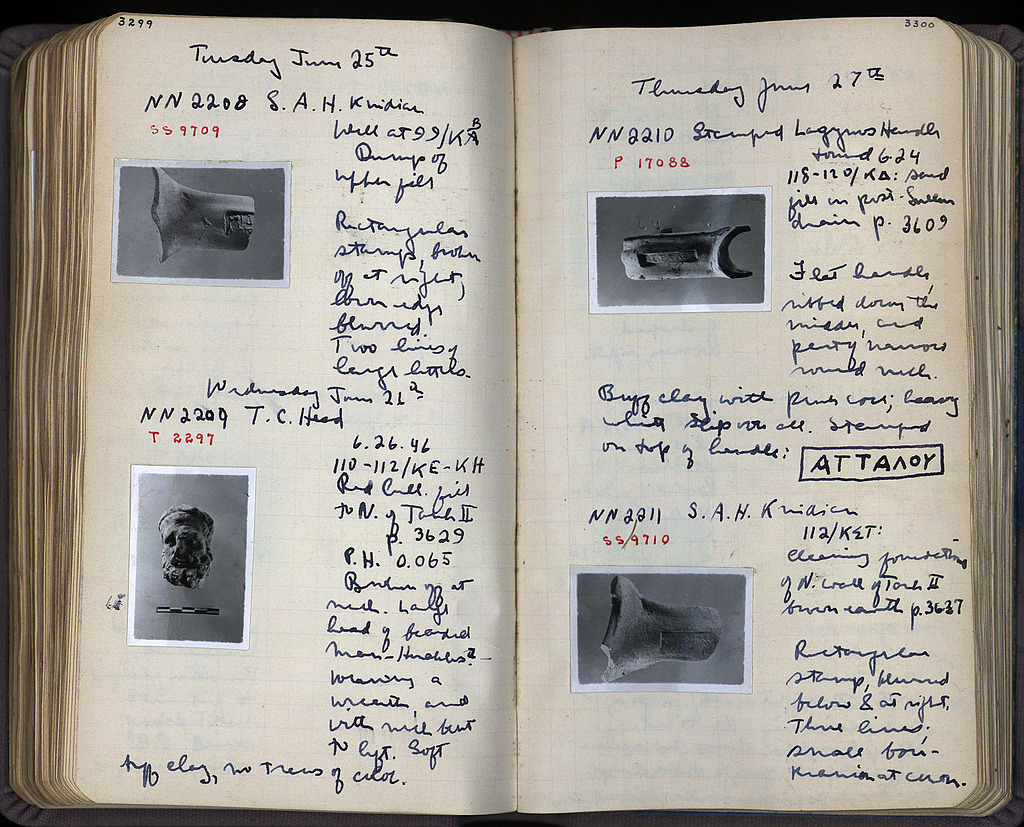 3299
Tuesday June 25th
NN 2208 S. A. H. Knidian
SS 9709
Well at 99/KA
B
Dump of
upper fill
Rectangular
stamp, broken
off at right,
lower edge
blurred.
Two lines of
large letters.
Wednesday June 26
NN 2209 T. C. Head
T 2297
6.26.46
110-112/KE-KH
Red fill
to N. of Tomb II
p. 3629
P.H. 0.065
Broken off at
neck. Large
head of bearded
man - Herakles? -
wearing a
wreath, and
with neck bent
to left. Soft
buff clay, no traces of color.
3300
Thursday June 27th
NN 2210 Stamped Lagynos Handle
P 17088
found 6.24
118-120/KΔ: sand
fill in post-Sullan
drain p. 3609
Flat handle,
ribbed down the
middle, and
part of narrow
round neck.
Buff clay with pink core; heavy
white slip over all. Stamped
on top of handle:
ΑΤΤΑΛΟΥ
NN 2211 S. A. H. Knidian
SS 9710
112/KΣΤ:
Cleaning foundation
of N. wall of Tomb II
brown earth p. 3637
Rectangular
stamp, blurred
below & at right.
Three lines;
small bou-
kranion at center.